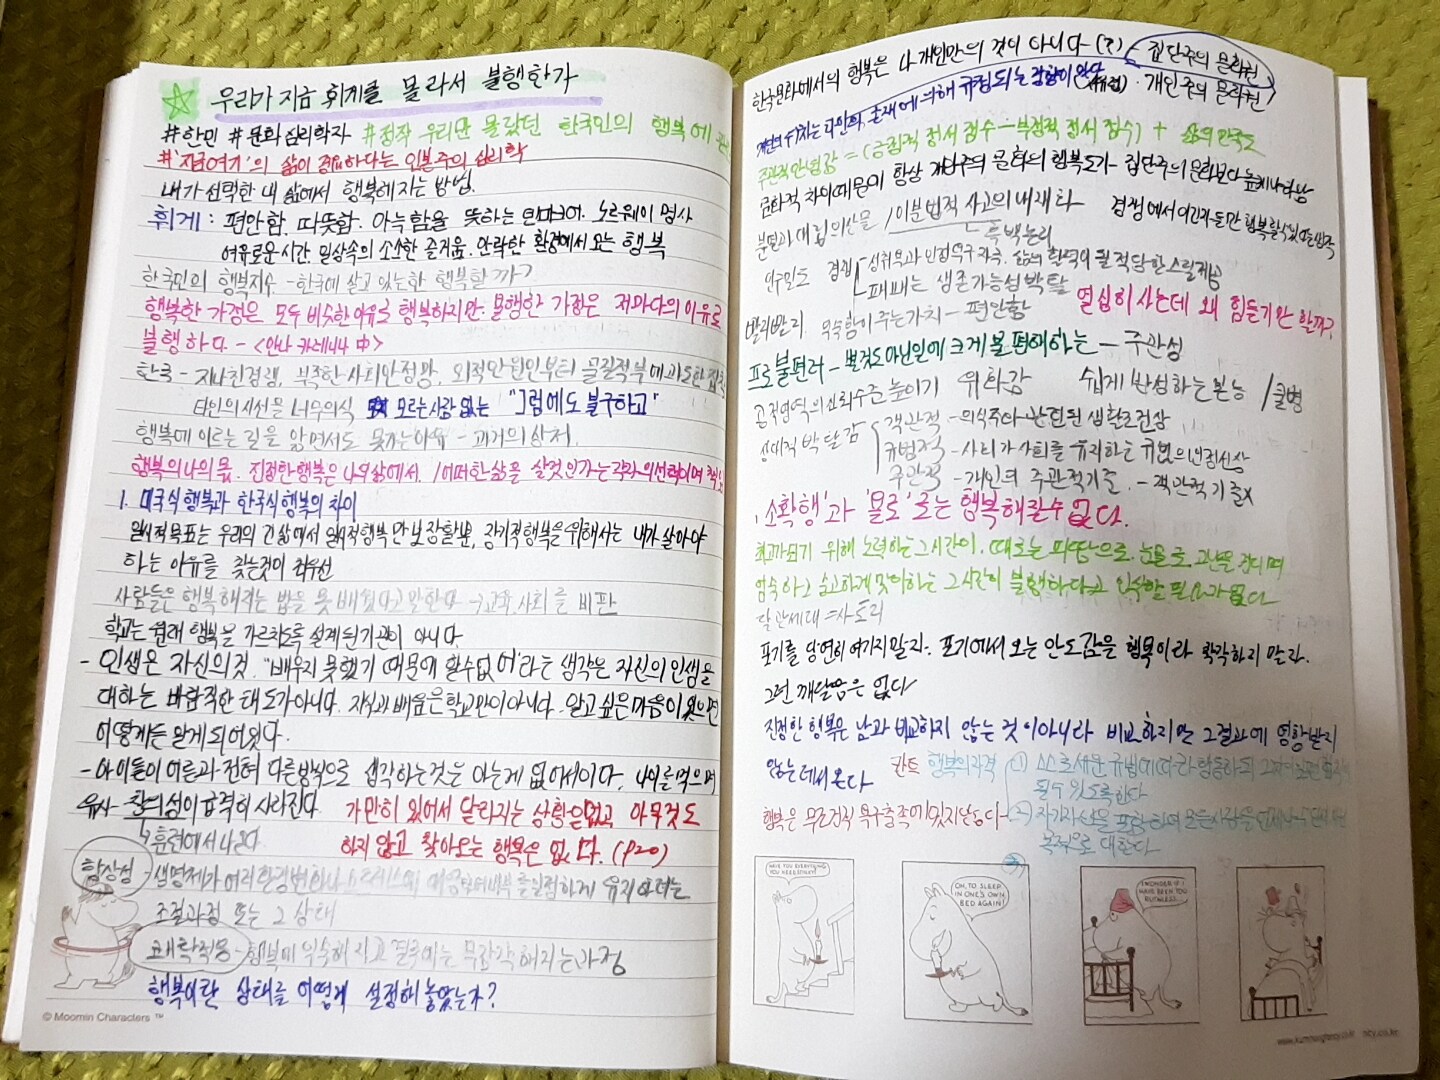 우리가 지금 휘게를 몰라서 불행한가
#한민 #문화심리학자 #정작 우리만 몰랐던 한국인의 행복에
#'지금여기'의 삶이 중요하다는 인본주의 심리학
내가 선택한 내 삶에서 행복해지는 방법.
휘게 : 편안함. 따뜻함. 아늑함을 뜻하는 덴마크어. 노르웨이 명사
여유로운시간. 일상속의 소소한 즐거움. 안락한 환경에서 오는 행복
한국인의 행복지수 - 한국에 살고 있는한 행복할까?
행복한 가정은 모두 비슷한 이유로 행복하지만. 불행한 가정은 저마다의 이유로
불행하다 - <안나 카레니나 中>
한국 - 지나친경쟁, 부족한 사회안정망, 외적안원인부터 물질적부에 과도한 집착
타인의 시선을 너무의식 모르는사람 없는 "그럼에도 불구하고"
행복에 이르는 길을 알면서도 못가는이유 - 과거의 상처.
행복의 나의 몫. 진정한행복은 나의 삶에서. 어떠한 삶을 살것인가는 각자의선택이며
1. 미국식행복과 한국식행복의 차이
일시적목표는 우리의 긴 삶에서 일시적행복만 보장할뿐, 장기적행복을 위해서는 내가 살아야
하는 이유를 찾는것이 최우선
사람들은 행복해지는 법을 못 배웠다고 말한다 → 교육. 사회를 비판
학교는 원래 행복을 가르치도록 설계된기관이 아니다.
- 인생은 자신의 것. "배우지 못했기 때문에 할수없어"라는 생각은 자신의 인생을
대하는 바람직한 태도가아니다. 지식과배움은학교만이아니다. 알고 싶은마음이 있으면
어떻게든 알게 되어있다.
- 아이들이 어른과 전혀 다른방식으로 생각하는것은 아는게 없어서이다. 나이를 먹으며
유사 - 창의성이 급격히 사라진다. 가만히 있어서 달라지는 상황은없고 아무것도
↳ 훈련에서 나온다 하지 않고 찾아오는 행복은 없다. (p20)
항상성 - 생명체가 여러환경변화나 스트레스에 대응 내부를일정하게 유지하려는
조절과정 또는 그 상태
쾌락적응 - 행복에 익숙해지고 결국에는 무감각해지는과정
행복이란 상태를 어떻게 설정해 놓았는가?
© Moomin Characters ™
한국문화에서의 행복은 나 개인만의 것이 아니다(?) = 집단주의 문화권
개인의 가치는 타인의 존재에 의해 규정되는 경향이 있다 (서유럽) · 개인주의 문화권
주관적안녕감 = (긍정적 정서 점수 - 부정적 정서 점수) + 삶의 만족도
문화적 차이때문에 항상 개인주의 문화의 행복도가 집단주의문화보다 높게 나타남
분단과 대립의산물 / 이분법적 사고의 내재화 경쟁에서이긴자들만 행복할수있다는생각
흑백논리
인구밀도 경쟁 - 성취욕과 인정욕구자극. 삶의 활력이 될 적당한스릴제공
패배는 생존가능성박탈 열심히 사는데 왜 힘들기만 할까?
빨리빨리. 익숙함이주는가치 - 편안함
프로불편러 - 별것도 아닌일에 크게 불편해하는 - 주관성
공적영역의신뢰수준 높이기 위화감 쉽게 반성하는 본능 /
상대적 박탈감 객관적 - 의식주마 난란된 생활조건
규범적 - 사회가 사회를 유지하는
주관적 - 개인의 주관적기준. - 객관적 기준x
'소확행'과 '욜로'로는 행복해질수 없다.
최고가되기 위해 노력하는그시간이. 때로는 피땀으로. 눈물로. 고난을 견디며
엄숙하고 숭고하게 맞이하는 그시간이 불행하다고 인식할 필요가 없다
달관세대 = 사토리
포기를 당연히 여기지말라. 포기에서 오는 안도감을 행복이라 착각하지 말라.
그런 깨달음은 없다
진정한 행복은 남과 비교하지 않는 것이아니라 비교하지만 그결과에 영향받지
않는데서 온다 칸트 행복의자격 (1) 스스로세운 규범에따라 행동하되 그것이보편법칙이
될수 있도록한다
행복은 무조건적 욕구충족에있지않다 - (2) 자기자신을 포함하여 모든사람을 언제나
목적으로 대한다
HAVE YOU EVERYTHING YOU NEED, SNIFF?
OH, TO SLEEP IN ONE'S OWN BED AGAIN!
I WONDER IF I HAVE BEEN TOO RUTHLESS...